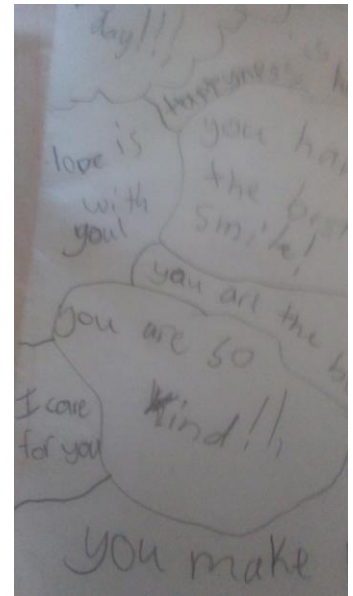 day!!!
Happyness
love is
with
you!
you hav
the best
smile!
you are the be
you are so
kind!!,
I care
for you
you make